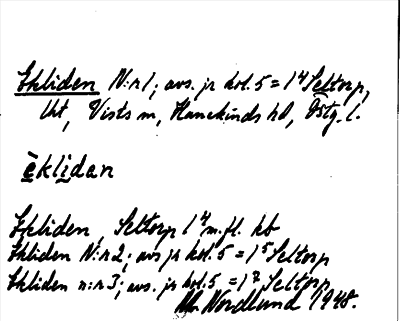 Ekliden N:r 1; avs. jr kol. 5 = 1⁴ Seltorp,
Uht, Vists sn, Hanekinds hd, Östg. l.
èklidan
Ekliden, Seltorp 1⁴ m.fl. hb
Ekliden N:r 2; avs jr kol. 5 = 1⁵ Seltorp
Ekliden n:r 3; avs. jr kol. 5 = 1² Seltorp
Nordlund 1948.